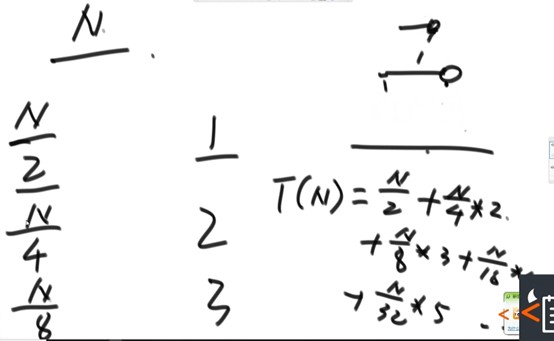 N
N/2 1
N/4 2
N/8 3
T(N) = N/2 + N/4 * 2
+ N/8 * 3 + N/16 *
+ N/32 * 5 ...